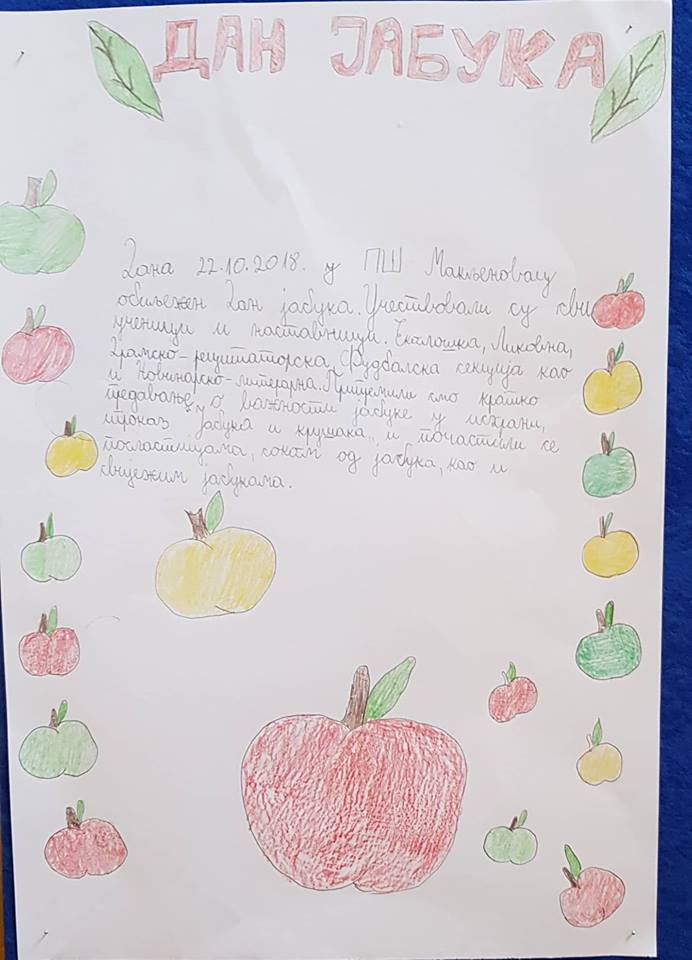 ДАН ЈАБУКА
Дана 22.10.2018. у ПШ Макљеновац
обиљежен Дан јабука. Учествовали су сви
ученици и наставници. Еколошка, Ликовна,
Драмско-рецитаторска, Фудбалска секција као
и Новинарско-литерарна. Припремили смо кратко
предавање о важности јабуке у исхрани,
приказ "Јабука и крушака" и почастили се
посластицама, соком од јабука, као и
свијежим јабукама.